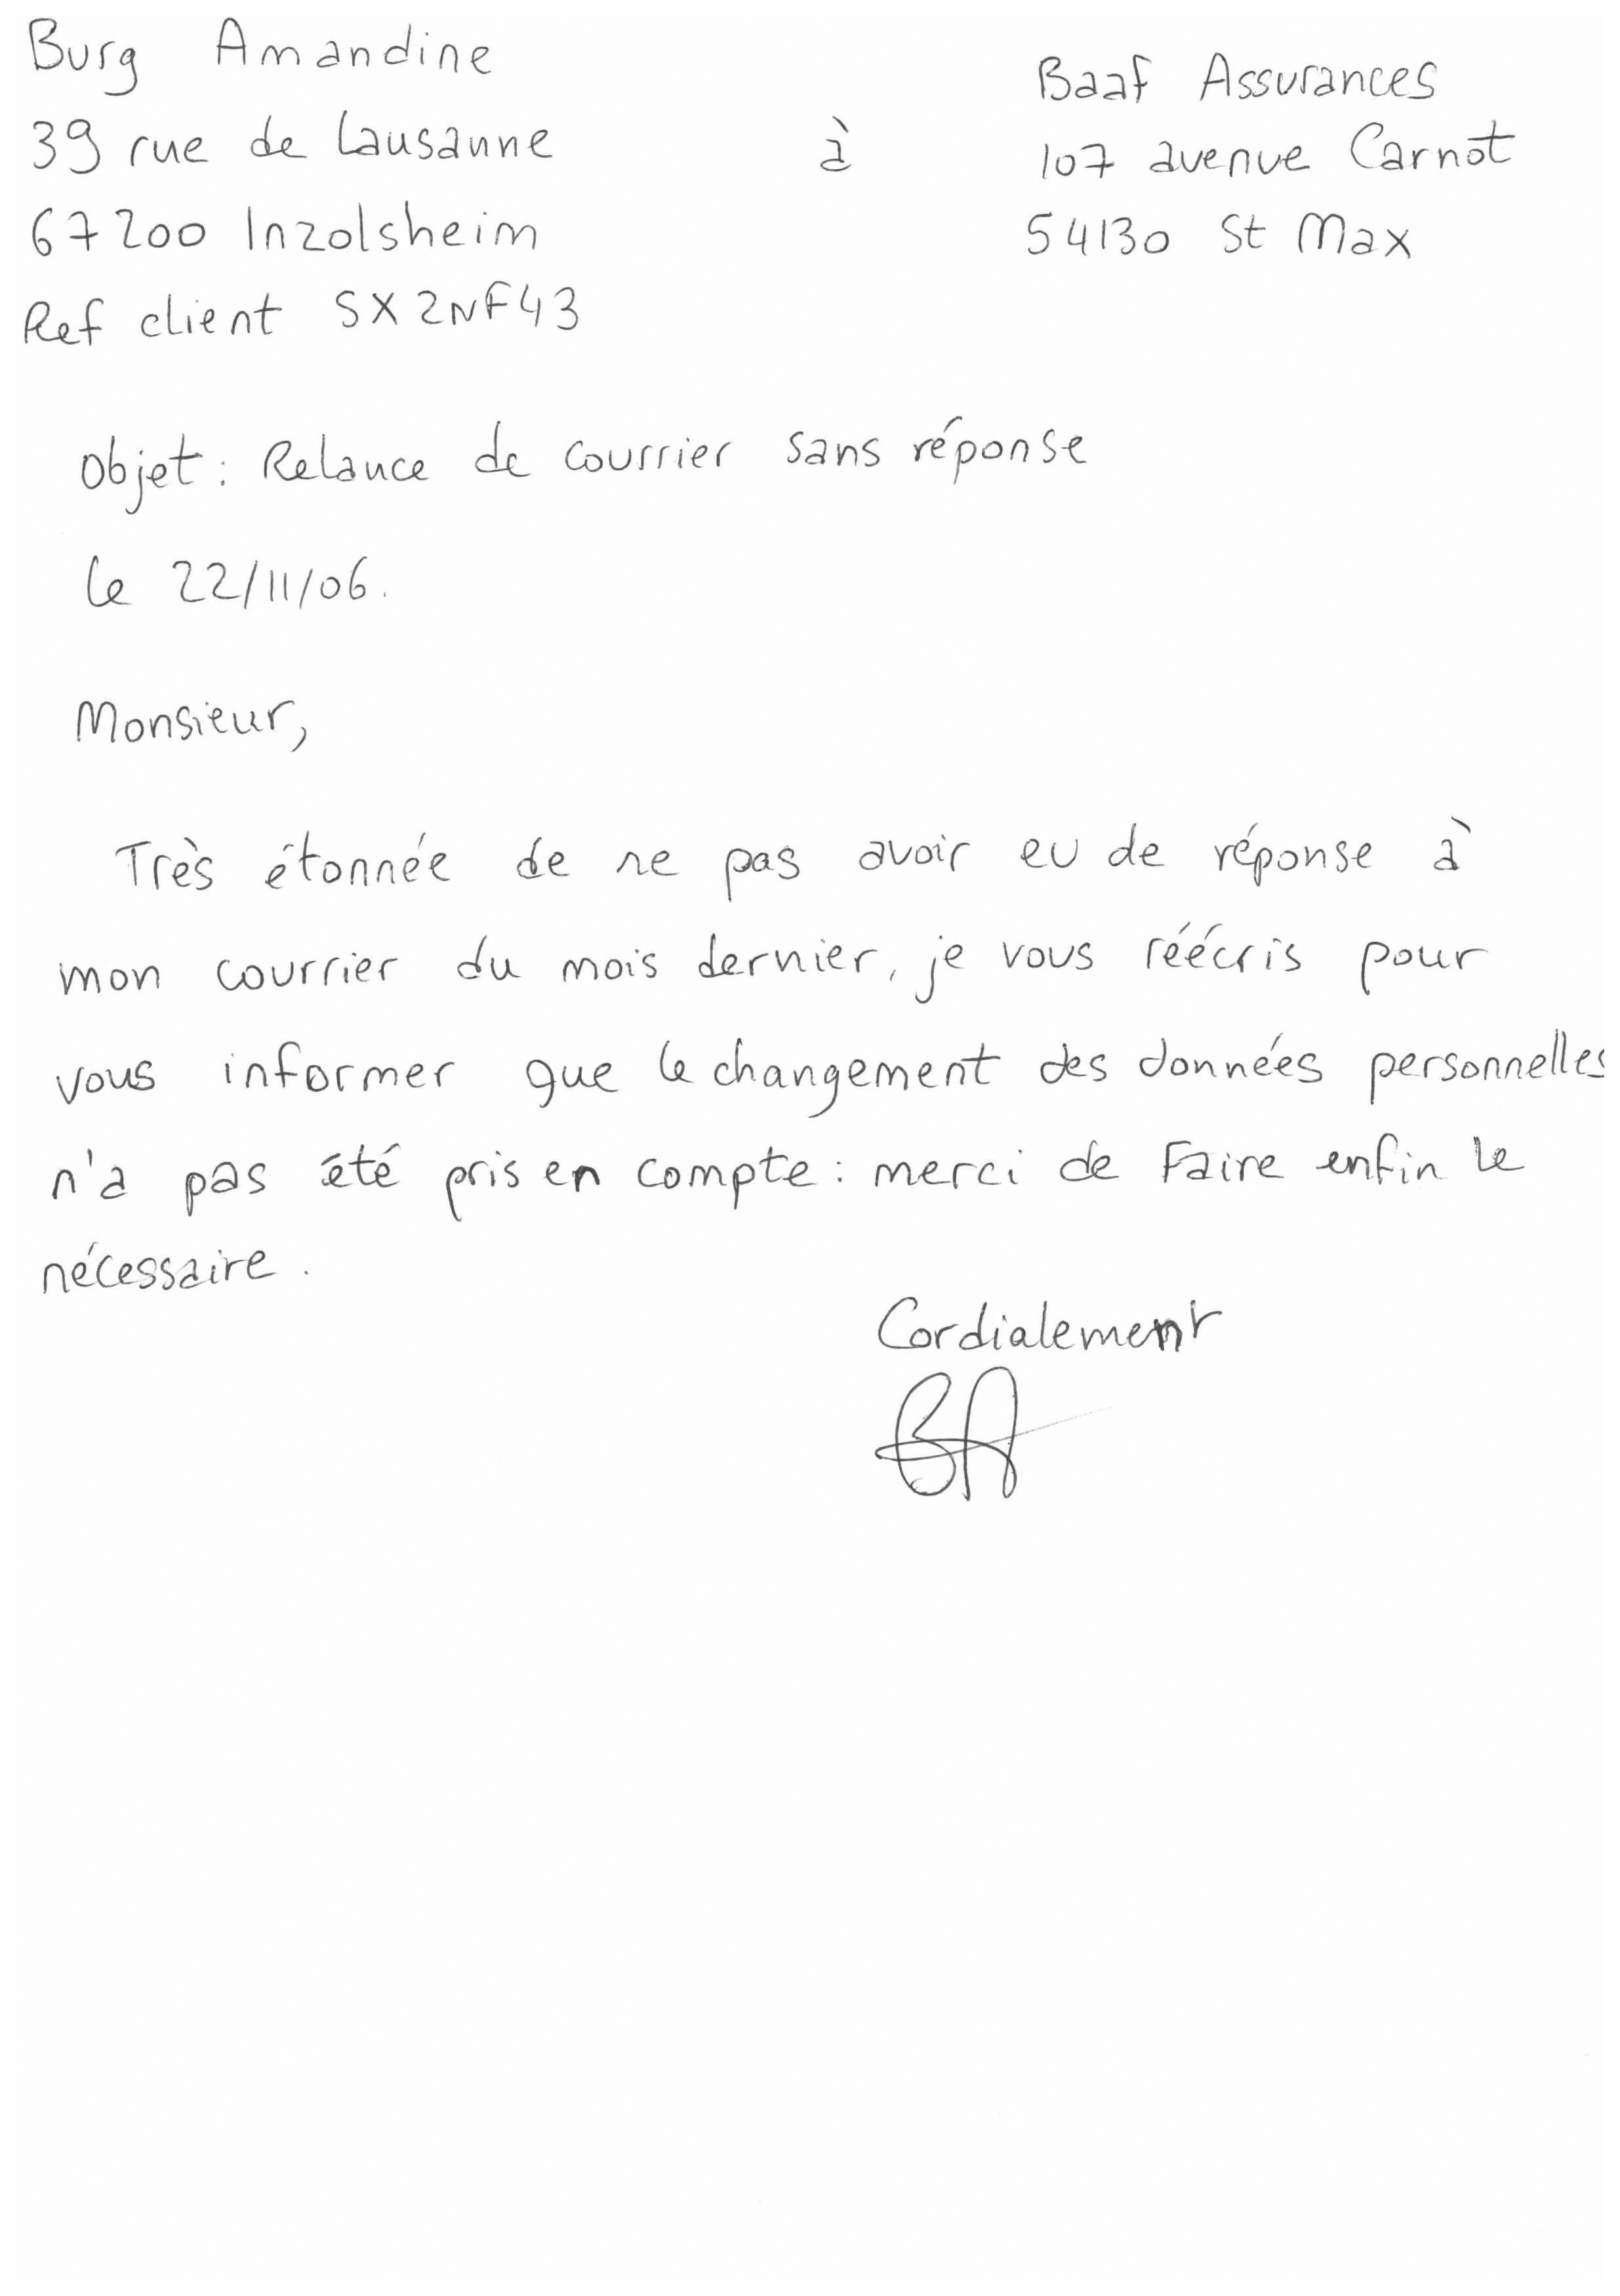 Burg Amandine
39 rue de Lausanne
67200 Inzolsheim
Ref client SX2NF43
à
Baaf Assurances
107 avenue Carnot
54130 St Max
Objet : Relance de courrier sans réponse
le 22/11/06.
Monsieur,
Très étonnée de ne pas avoir eu de réponse à
mon courrier du mois dernier, je vous réécris pour
vous informer que le changement des données personnelles
n'a pas été pris en compte : merci de faire enfin le
nécessaire.
Cordialement
BA